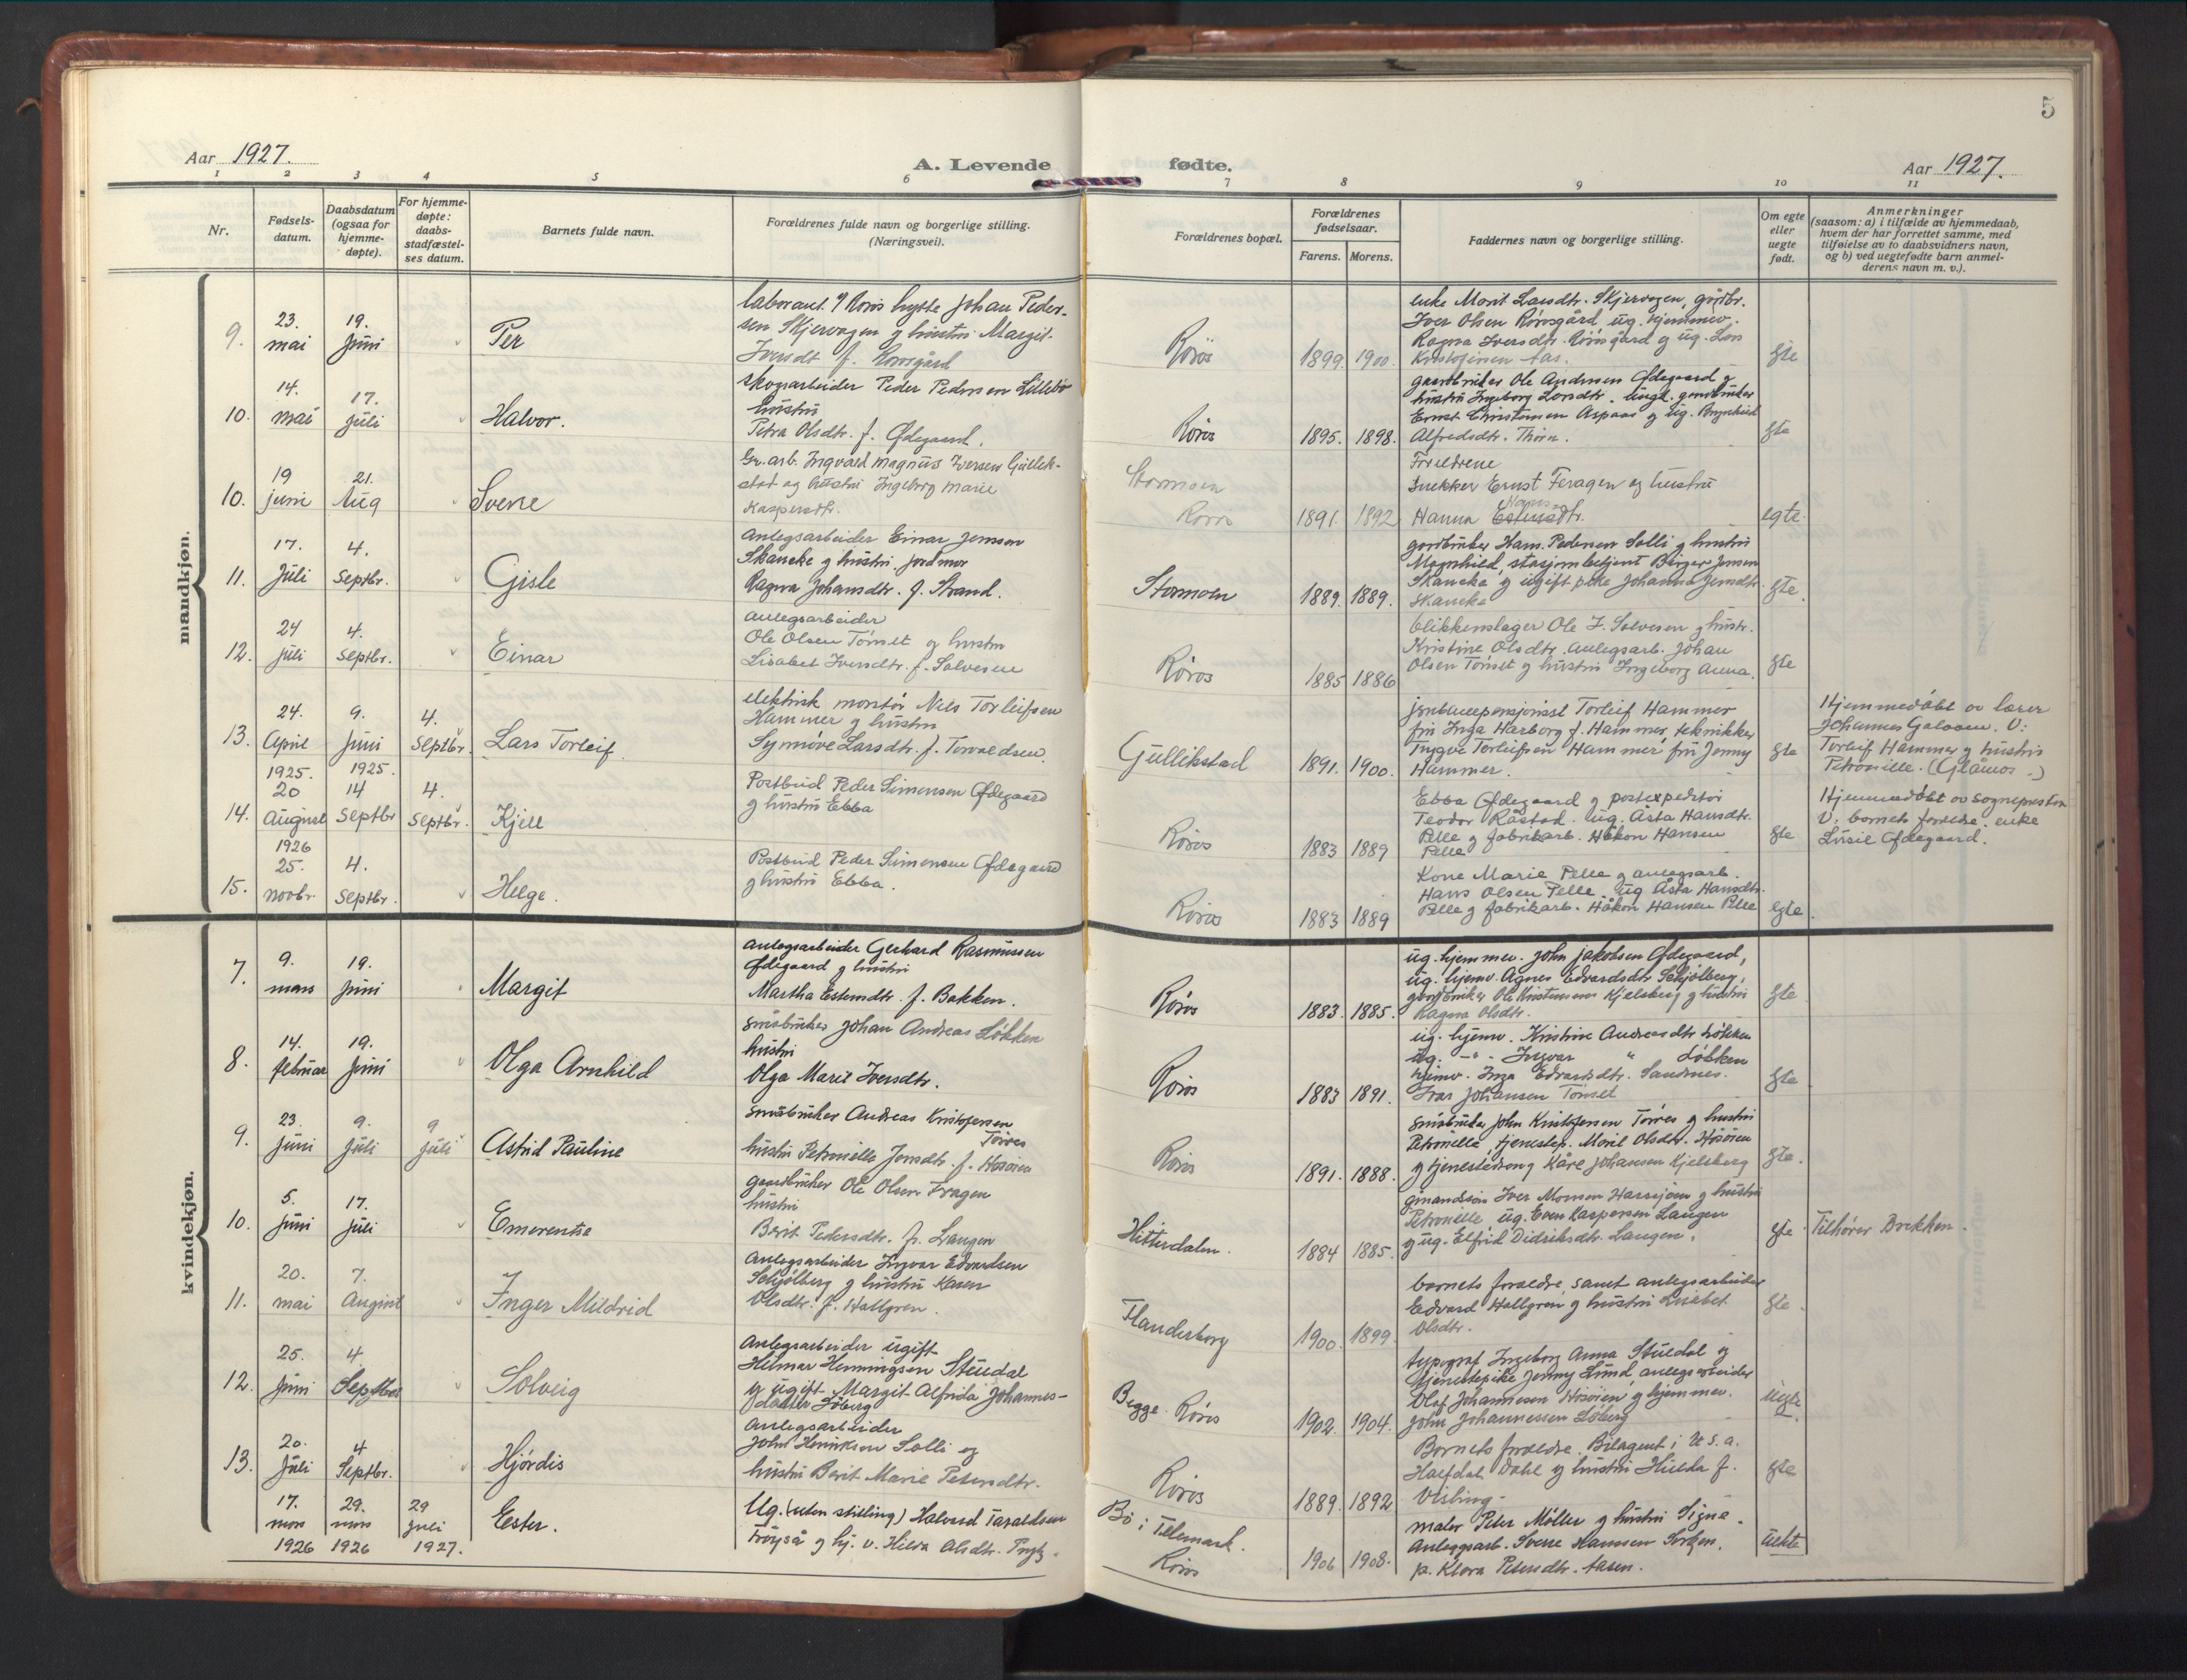 5
Aar 1927.
A. Levende
fødte.
Aar 1927.
1 2 3 4 5 6 7 8 9 10 11
Nr.
Fødsels-
datum.
Daabsdatum
(ogsaa for
hjemme-
døpte).
For hjemme-
døpte:
daabs-
stadfæstel-
ses datum.
Barnets fulde navn.
Forældrenes fulde navn og borgerlige stilling.
(Næringsvei).
Forældrenes bopæl.
Forældrenes
fødselsaar.
Farens. Morens.
Faddernes navn og borgerlige stilling.
Om egte
eller
uegte
født.
Anmerkninger
(saasom: a) i tilfælde av hjemmedaab,
hvem der har forrettet samme, med
tilføielse av to daabsvidners navn,
og b) ved uegtefødte barn anmel-
derens navn m. v.).
mandkjøn.
9.
23.
mai
19.
Juni
Per
laborant v/ Røros hytte Johan Peder-
sen Skjervagen og hustru Margit
Iversdt f. Rørosgård
Røros
1899. 1900.
enke Marit Larsdtr. Skjervagen, gårdbr.
Iver Olsen Rørosgård, ug. hjemmev.
Ragna Iversdtr. Rørosgård og ug. Lars
Kristofersen Aas.
gte
10.
14.
mai
17.
Juli
Halvor.
Skogsarbeider Peder Pedersen Lillebo
hustru
Petra Olsdtr. f. Ødegaard.
Røros
1895. 1898.
gaardbruker Ole Andersen Ødegaard og
hustru Ingeborg Larsdtr. Ungk. gardbruker
Ernst Christensen Aspaas og ug. Brynhild
Alfredsdtr. Thorn.
gte
10.
19
juni
21.
Aug
Sverre
Gr. arb. Ingvald Magnus Iversen Gullik-
stad og hustru Ingeborg Marie
Kaspersdtr.
Stormoen
Røros
1891. 1892
Foreldrene
Snekker Ernst Feragen og hustru
Hans
Hanna Estensdtr.
egte.
11.
17.
Juli
4.
Septbr.
Gisle
Anlegsarbeider Einar Jensen
Skancke og hustru jordmor
Ragna Johansdtr. f. Strand.
Stormoen
1889. 1889.
gardbruker Hans Pedersen Solli og hustru
Magnhild, stasjonsbetjent Birger Jensen
Skancke og ugift pike Johanna Jensdtr.
Skancke
gte.
12.
24
juli
4.
Septbr.
Einar
Anlegsarbeider
Ole Olsen Tønset og hustru
Lisabet Iversdtr. f. Solvesen
Røros
1885 1886
blikkenslager Ole J. Solvesen og hustr.
Kristine Olsdtr. anlegsarb. Johan
Olsen Tønset og hustru Ingeborg Anna.
gte
13.
24.
April
1925.
9.
Juni
1925.
4.
Septbr.
Lars Torleif.
elektrisk montør Nils Torleifsen
Hammer og hustru
Synnøve Larsdtr. f. Torvaldsen.
Gullikstad
1891. 1900.
jernbanepensjonist Torleif Hammer
fru Inga Harborg f. Hammer, tekniker
Trygve Torleifsen Hammer fru Jenny
Hammer.
gte
Hjemmedøbt av lærer
Johannes Galaaen. V:
Torleif Hammer og hustru
Petronille. (Glåmos.)
14.
20
August
1926
14
Septbr
4.
Septbr.
Kjell
Postbud Peder Simensen Ødegaard
og hustru Ebba
Røros
1883 1889
Ebba Ødegaard og postexpeditør
Teodor Råstad. ug. Åsta Hansdtr.
Pelle og fabrikarb. Håkon Hansen
Pelle
gte
Hjemmedøbt av Sognepresten
V. barnets foreldre. enke
Lusie Ødegaard.
15.
25.
novbr.
4.
Septbr.
Helge.
Postbud Peder Simensen Ødegaard
og hustru Ebba.
Røros
1883 1889
Kone Marie Pelle og anlegsarb.
Hans Olsen Pelle. ug Åsta Hansdtr.
Pelle og fabrikarb. Håkon Hansen Pelle
egte.
kvindekjøn.
7.
9.
mars
19.
Juni
Margit
anlegsarbeider Gerhard Rasmussen
Ødegaard og hustru
Martha Estensdtr. f. Bakken.
Røros
1883. 1885.
ug. hjemmev. John Jakobsen Ødegaard,
ug. hjemv. Agnes Edvardsdtr Schjølberg,
gardbruker Ole Kristensen Kjelsberg og hustru
Ragna Olsdtr.
gte
8.
14.
februar
19.
Juni
Olga Arnhild
småbruker Johan Andreas Løkken
hustru
Olga Marie Iversdtr.
Røros
1883 1891.
ug. hjemv. Kristine Andreasdtr Løkken
ug. -"- Ingvar " Løkken
hjemv. Inga Edvardsdtr. Sandnes.
Ivar Johansen Tønset
gte
9.
23.
Juni
9.
Juli
9
juli
Astrid Pauline
småbruker Andreas Kristofersen
Torres
hustru Petronille Jonsdtr. f. Hosøien
Røros
1891. 1888.
småbruker John Kristofersen Torres og hustru
Petronille, tjenestep. Marit Olsdtr. Hosøien
og tjenestedreng Kåre Johansen Kjelsberg
gte.
10.
5.
Juni
17.
Juli
Emerentse
gaardbruker Ole Olsen Fragen
hustru
Berit Pedersdtr. f. Langen
Hitterdalen.
1884 1885.
gmandsøn Iver Monsen Harsjøen og hustru
Petronelle, ug. Even Kaspersen Langen
og ug. Elfrid Didriksdtr. Langen.
gte
Tilhører Brekken.
11.
20.
mai
7.
August
Inger Mildrid
Anlegsarbeider Ingvar Edvardsen
Schjølberg og hustru Karen
Olsdtr. f. Hallgren.
Flanderborg
1900. 1899.
barnets foreldre, samt anlegsarbeider
Edvard Hallgren og hustru Lisabet
Olsdtr.
gte
12.
25.
Juni
4.
Septber
Solveig
Anlegsarbeider ugift
Helmar Henningsen Stuedal
og ugift Margit Alfrida Johannes-
datter Løberg
Begge Røros
1902. 1904.
typograf Ingeborg Anna Stuedal og
tjenestepike Jenny Lund, anlegsarbeider
Olaf Johannesen Hosøien og hjemmev.
John Johannessen Løberg
Uegte.
13.
20.
Juli
4
Septbr.
Hjørdis
Anlegsarbeider
John Henriksen Solli og
hustru Berit Marie Petersdtr.
Røros
1889. 1892
Barnets foreldre. Bilagent i U.S.a.
Halfdan Dahl og hustru Hilda f.
Visling.
gte
17.
mars
1926
29.
mars
1926
29
juli
1927.
Ester.
Ug. (uten stilling) Halvard Taraldsen
Frøyså og hj. v. Hilda Olsdtr. Prytz.
Bø i Telemark.
Røros
1906 1908.
maler Peter Møller og hustru Signe.
Anleggsarb. Sverre Hansen Sorken.
p. Klara Petersdtr. Aasen.
Uekte